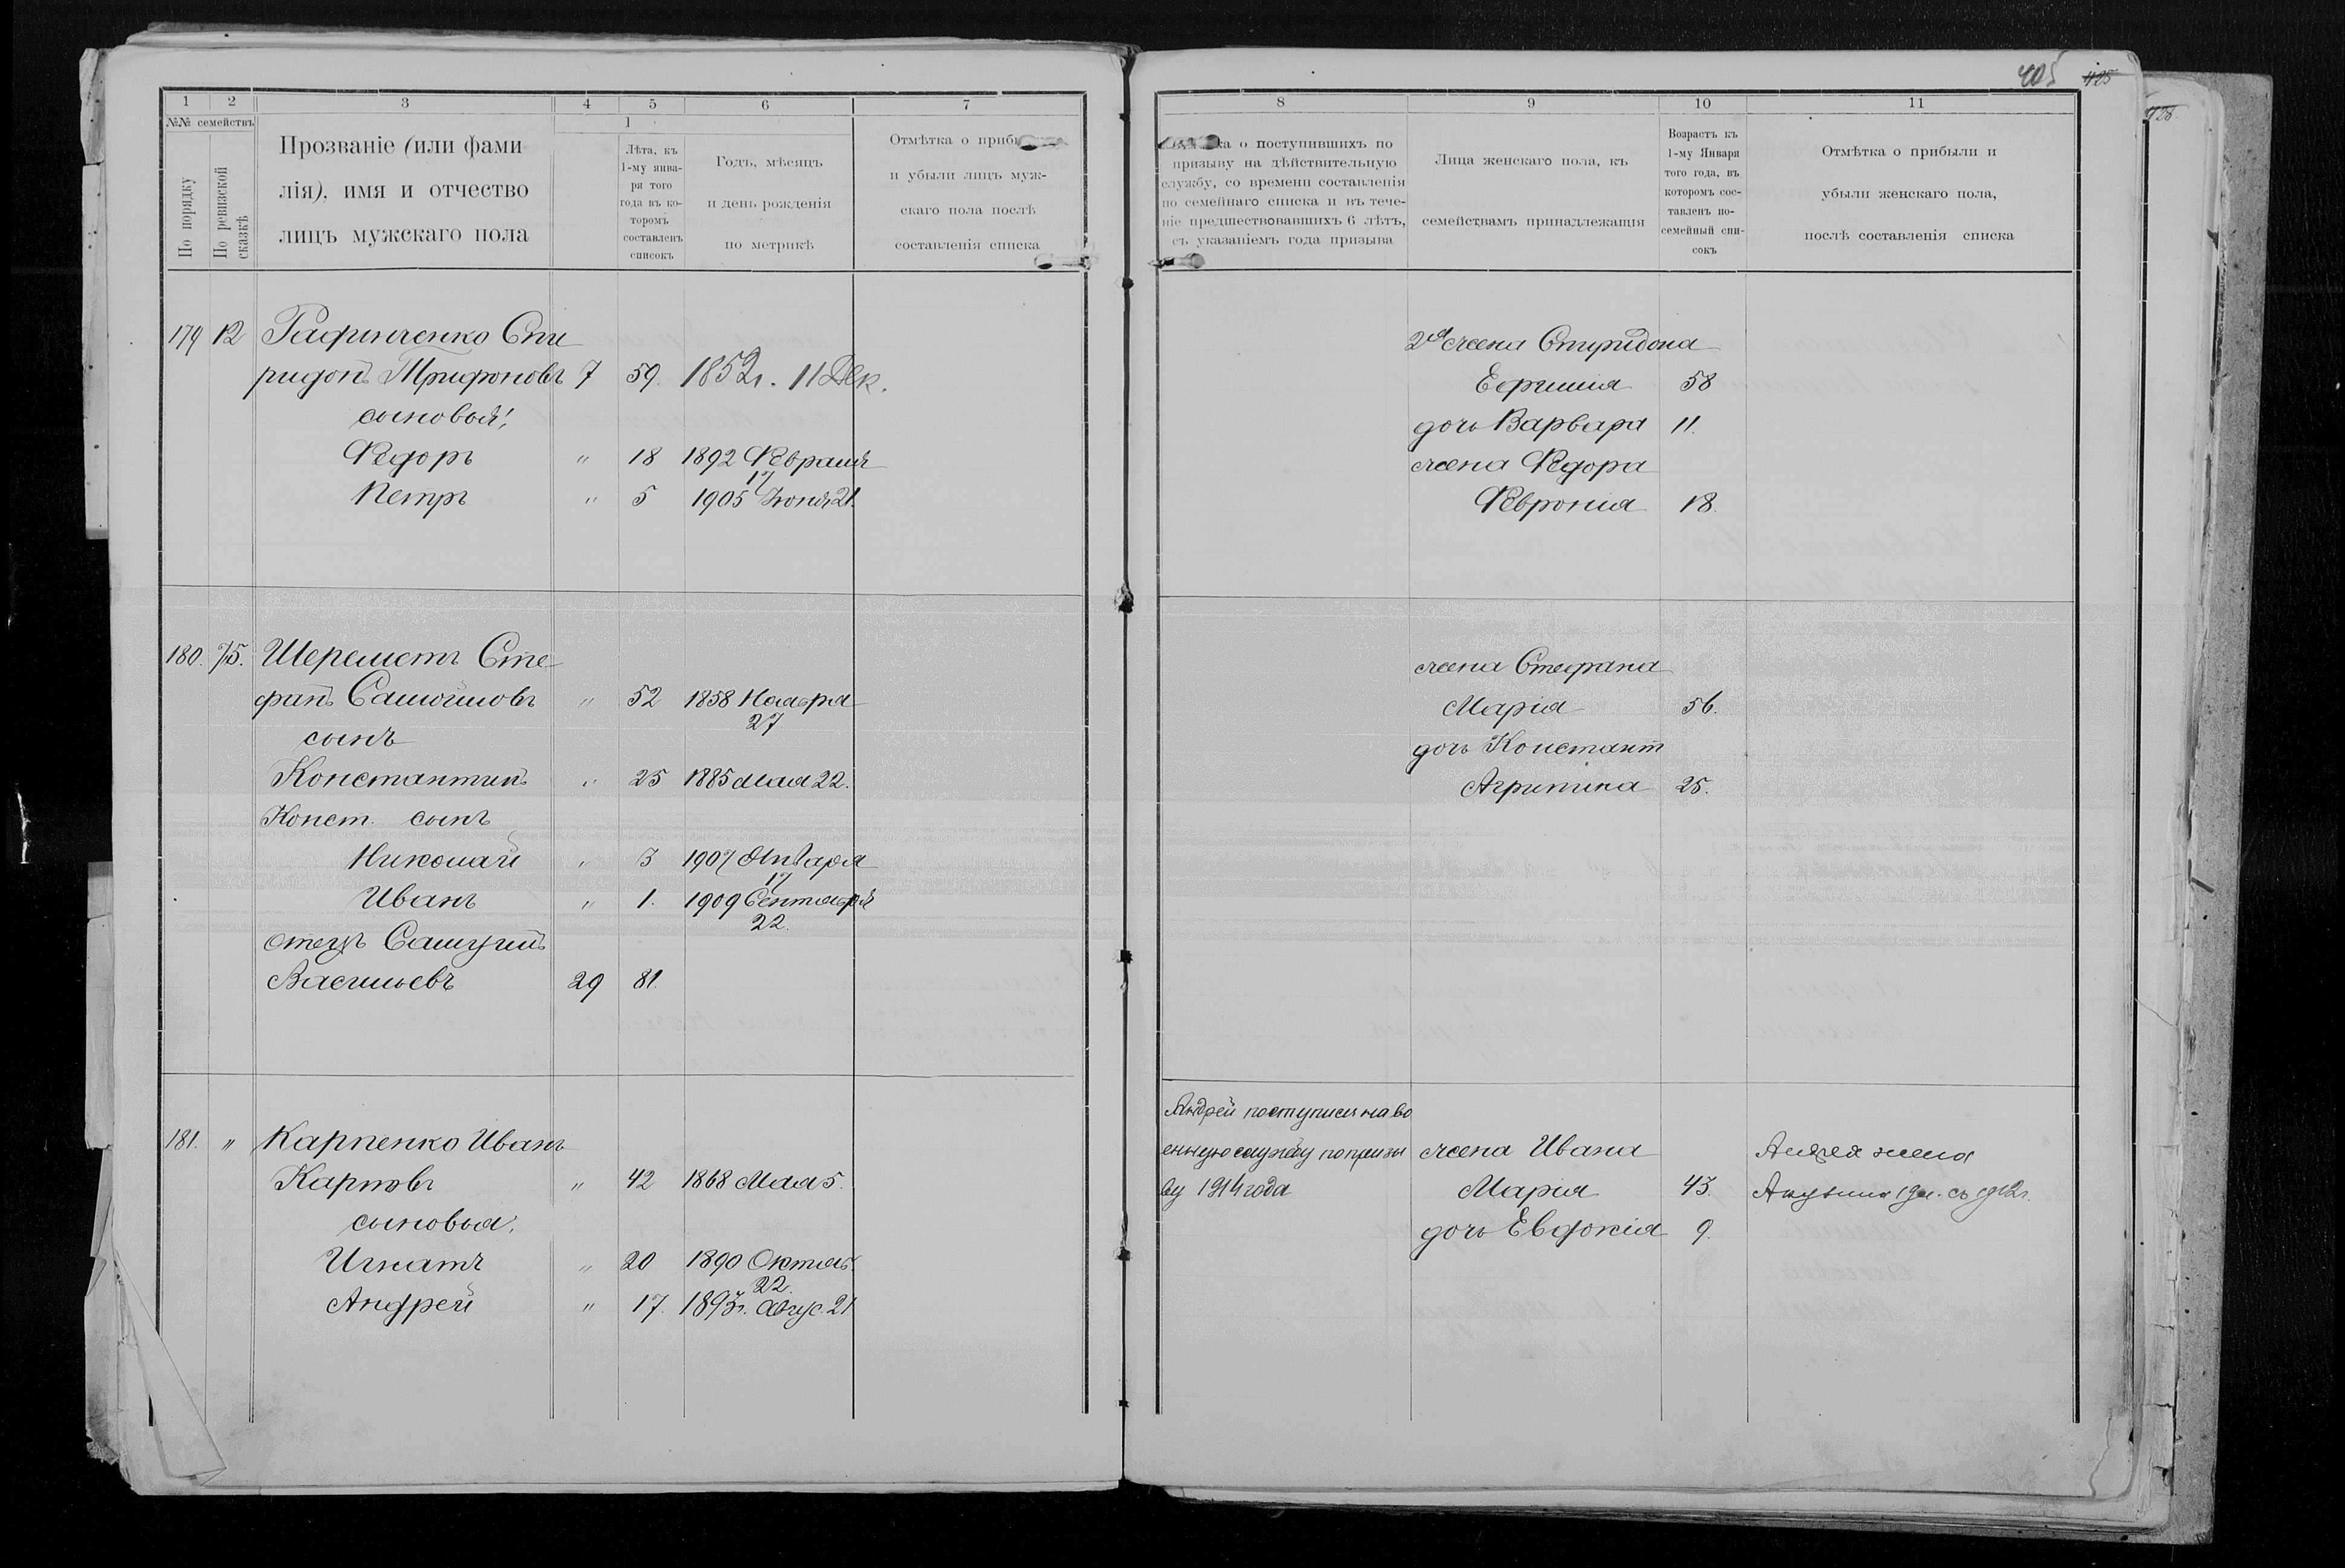 405 425
428
1 2 3 4 5 6 7
№№ семействъ
По порядку
По ревизской сказкѣ
Прозваніе (или фами
лія), имя и отчество
лицъ мужскаго пола
1
Лѣта, къ
1-му янва-
ря того
года въ ко-
торомъ
составленъ
списокъ
Годъ, мѣсяцъ
и день рожденія
по метрикѣ
Отмѣтка о приб
и убыли лицъ муж-
скаго пола послѣ
составленія списка
8 9 10 11
ка о поступившихъ по
призыву на дѣйствительную
службу, со времени составленія
по семейнаго списка и въ тече-
ніе предшествовавшихъ 6 лѣтъ,
съ указаніемъ года призыва
Лица женскаго пола, къ
семействамъ принадлежащія
Возрастъ къ
1-му Января
того года, въ
которомъ сос-
тавленъ по-
семейный спи-
сокъ
Отмѣтка о прибыли и
убыли женскаго пола,
послѣ составленія списка
179 12 Гафинченко Спи
ридонъ Трифоновъ 7 59. 1852г. 11 Дек.
сыновья:
Ѳедоръ " 18 1892 Февраля
17
Петръ " 5 1905 Іюня 21.
2я жена Спиридона
Ефимія 58
дочь Варвара 11.
жена Ѳедора
Февронія 18.
180. 75. Шереметъ Сте
фанъ Самойловъ " 52 1858 Ноября
27
сынъ
Константинъ " 25 1885 Мая 22.
Конст. сынъ
Николай " 3 1907 Января
17
Иванъ " 1. 1909 Сентября
22.
отецъ Самуилъ
Васильевъ 29 81.
жена Стефана
Марія 56.
дочь Констант
Агрипина 25.
181. " Карпенко Иванъ
Карповъ " 42 1868 Мая 5.
сыновья:
Игнатъ " 20 1890 Октяб.
22.
Андрей " 17. 1893г. Авгус. 21
Андрей поступилъ на во
енную службу по призы
ву 1914 года
жена Ивана
Марія 43.
дочь Евдокія 9.
Андрея жена
Акулина 19л. съ 1912г.